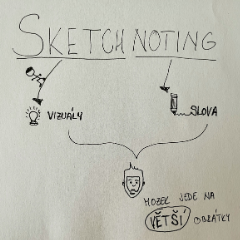 SKETCHNOTING
VIZUÁLY
SLOVA
MOZEK JEDE NA
VĚTŠÍ OBRÁTKY